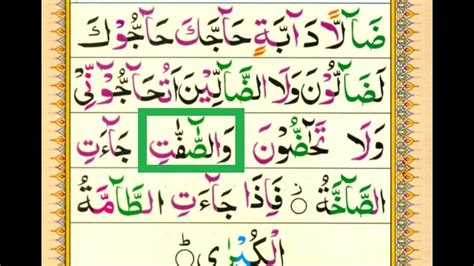 ضَآلًّا دَآبَّةٍ حَآجَّكَ حَآجُّوكَ
لَضَآلُّوْنَ وَلَا الضَّآلِّيْنَ اَتُحَآجُّوْٓنِّيْ
وَلَا تَحٰٓضُّوْنَ وَالصّٰٓفّٰتِ جَآءَتِ
الصَّآخَّةُ ۟ فَاِذَا جَآءَتِ الطَّآمَّةُ
الْكُبْرٰى ۟